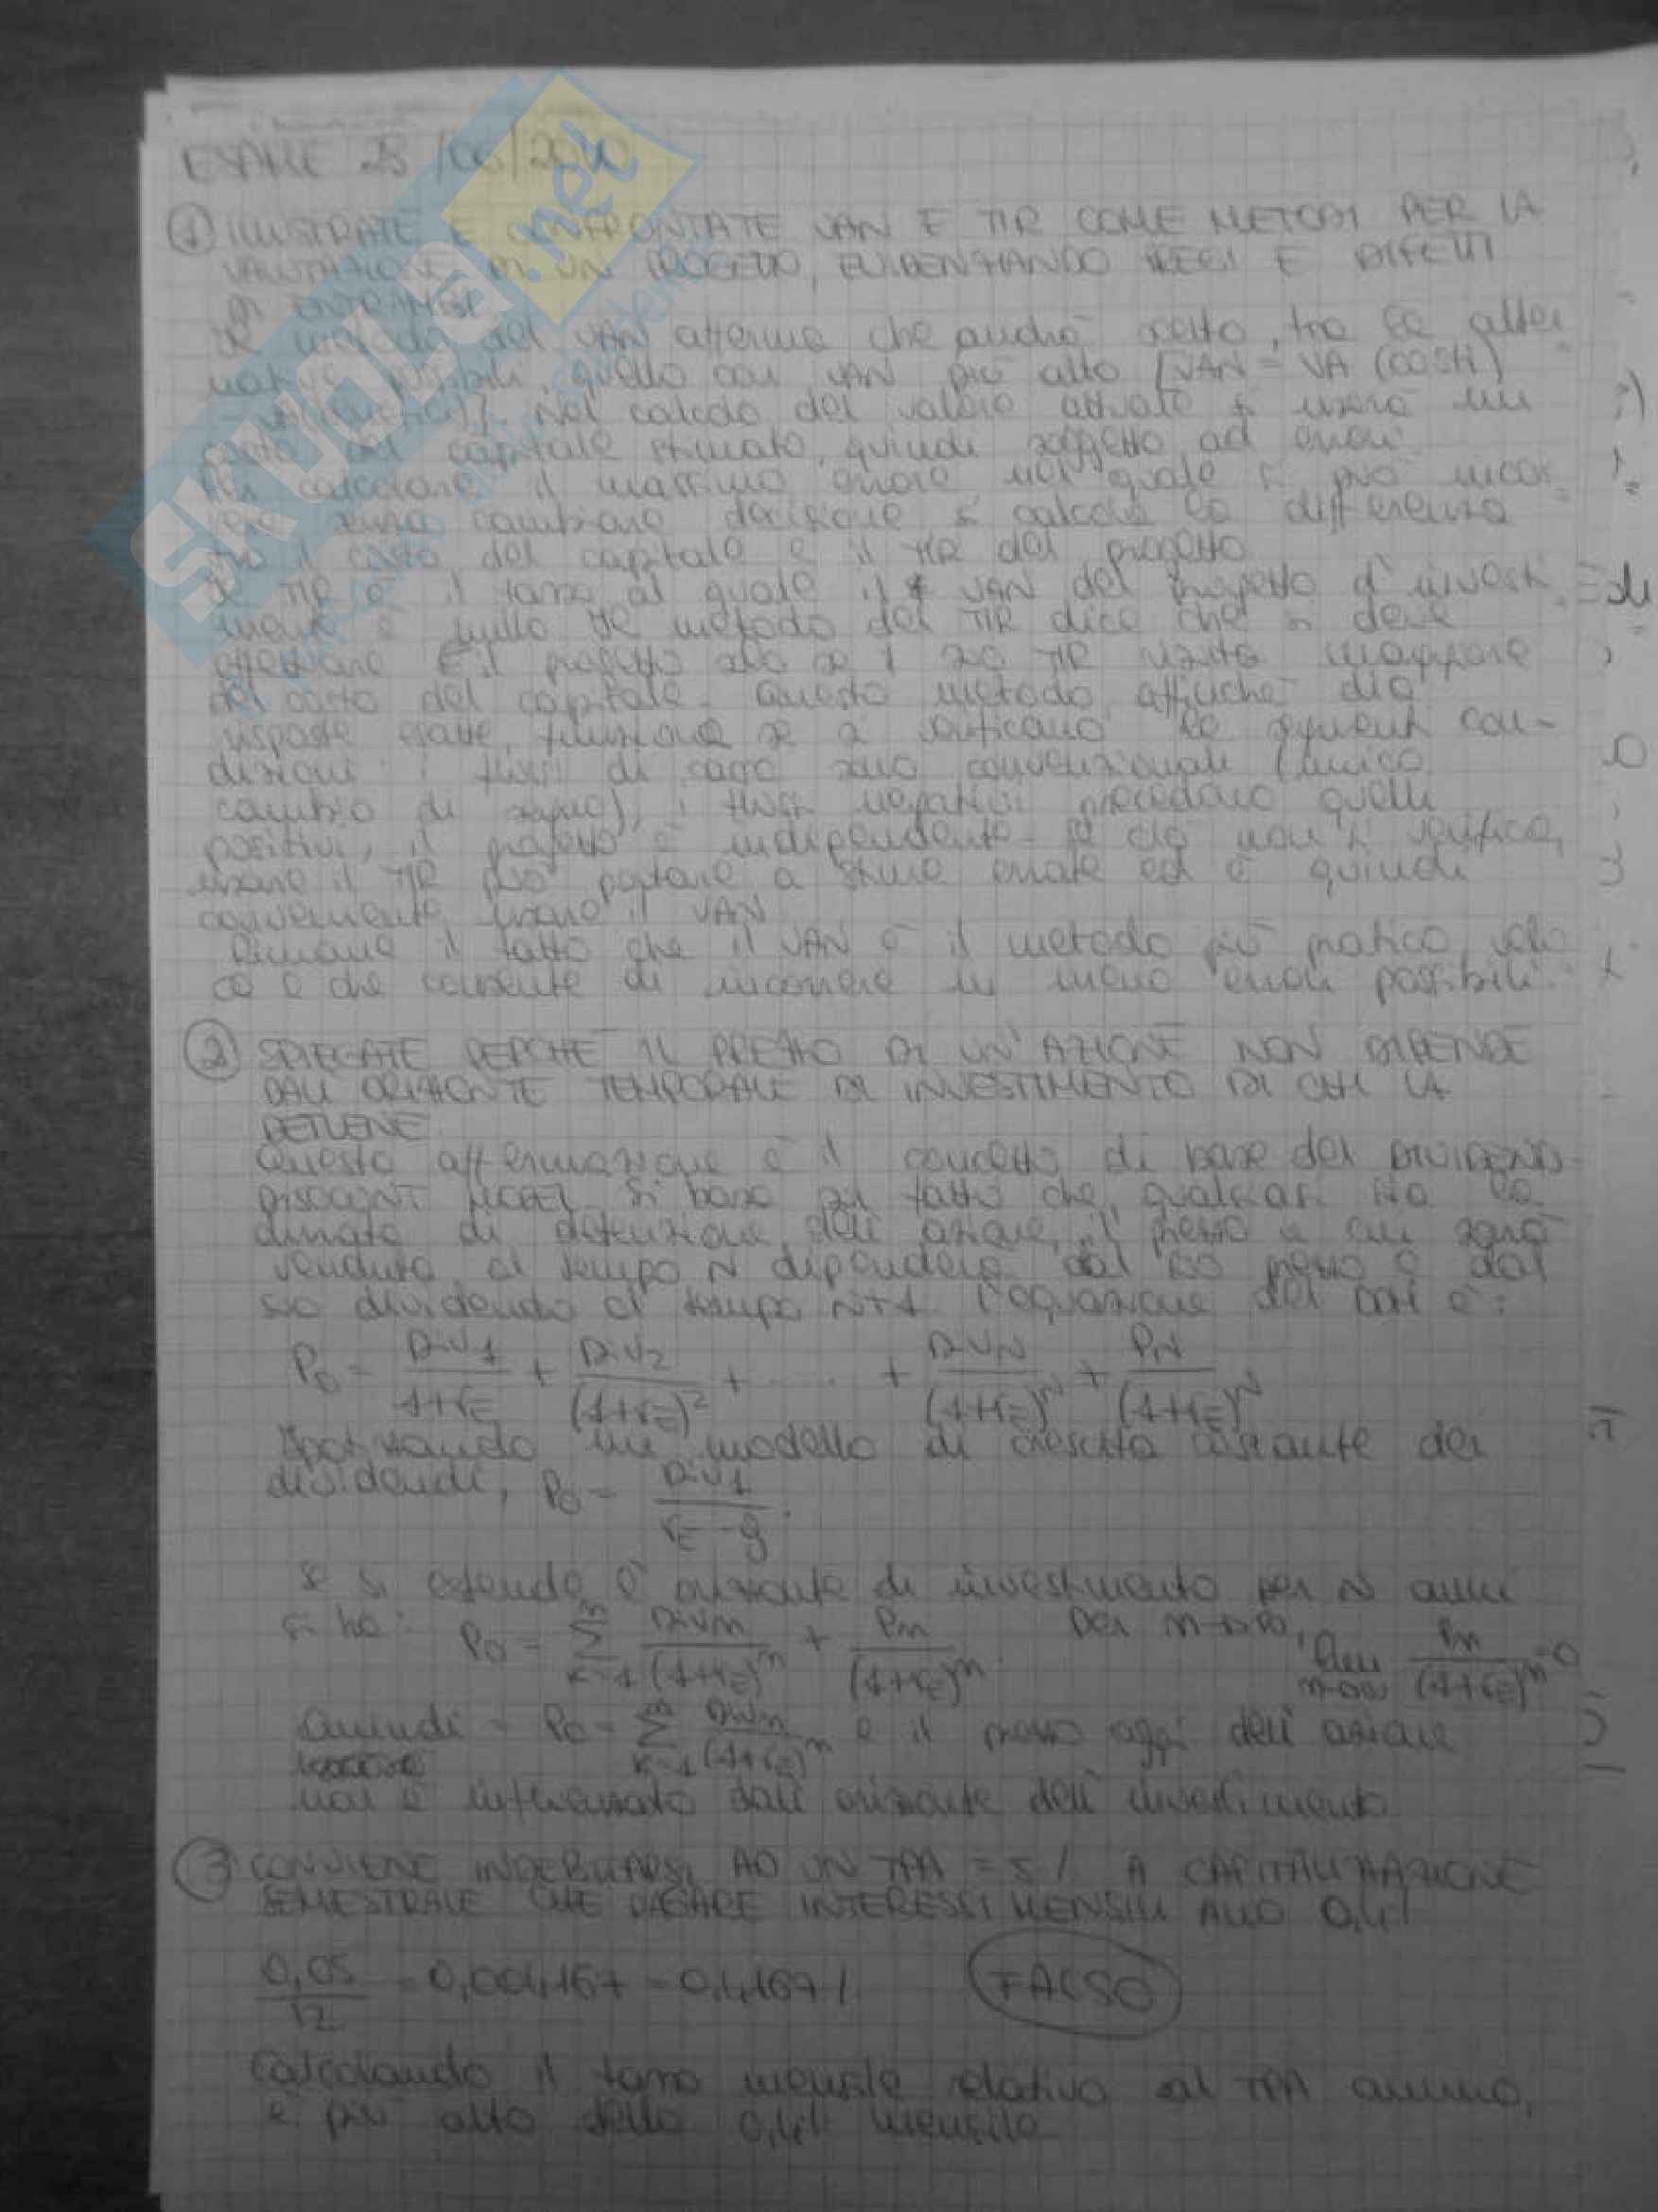 ESAME 25/06/2010
① ILLUSTRATE E CONFRONTATE VAN E TIR COME METODI PER LA
VALUTAZIONE DI UN PROGETTO, EVIDENZIANDO PREGI E DIFETTI
DI ENTRAMBI
Il metodo del VAN afferma che andrà scelto, tra le alter
native possibili, quello con VAN più alto [VAN = VA (costi)
Nel calcolo del valore attuale si userà un
costo del capitale stimato, quindi soggetto ad errori.
Per calcolare il massimo errore nel quale si può incor
rere senza cambiare decisione si calcola la differenza
tra il costo del capitale e il TIR del progetto
Il TIR è il tasso al quale il VAN del progetto d'investi
mento è nullo. Il metodo del TIR dice che si deve
effettuare il progetto solo se il suo TIR risulta maggiore
del costo del capitale. Questo metodo, affinché dia
risposte esatte, funziona se si verificano le seguenti con-
dizioni: i flussi di cassa sono convenzionali (unico
cambio di segno), i flussi negativi precedono quelli
positivi, il progetto è indipendente. Se ciò non si verifica,
usare il TIR può portare a stime errate ed è quindi
conveniente usare il VAN
Rimane il fatto che il VAN è il metodo più pratico, velo
ce e che consente di incorrere in meno errori possibili.
② SPIEGATE PERCHÉ IL PREZZO DI UN'AZIONE NON DIPENDE
DALL'ORIZZONTE TEMPORALE DI INVESTIMENTO DI CHI LA
DETIENE
Questa affermazione è il concetto di base del DIVIDEND-
DISCOUNT MODEL. Si basa sul fatto che, qualsiasi sia la
durata di detenzione dell'azione, il prezzo a cui sarà
venduta al tempo N dipenderà dal suo prezzo e dal
suo dividendo al tempo N+1. L'equazione del DDM è:
P0 = Div1/(1+rE) + Div2/(1+rE)^2 + ..... + DivN/(1+rE)^N + PN/(1+rE)^N
Ipotizzando un modello di crescita costante dei
dividendi, P0 = Div1/(rE-g).
Se si estende l'orizzonte di investimento per N anni
si ha: P0 = Σ(k=1, n) Divn/(1+rE)^n + Pn/(1+rE)^n. Per n→∞, lim n→∞ Pn/(1+rE)^n = 0
Quindi = P0 = Σ(k=1, n) Divn/(1+rE)^n e il prezzo oggi dell'azione
non è influenzato dall'orizzonte dell'investimento
③ CONVIENE INDEBITARSI AD UN TPA = 5% A CAPITALIZZAZIONE
SEMESTRALE CHE PAGARE INTERESSI MENSILI ALLO 0,4%
0,05/12 = 0,004167 = 0,4167% FALSO
Calcolando il tasso mensile relativo al TPA annuo,
è più alto dello 0,4% mensile
SKUOLA.net